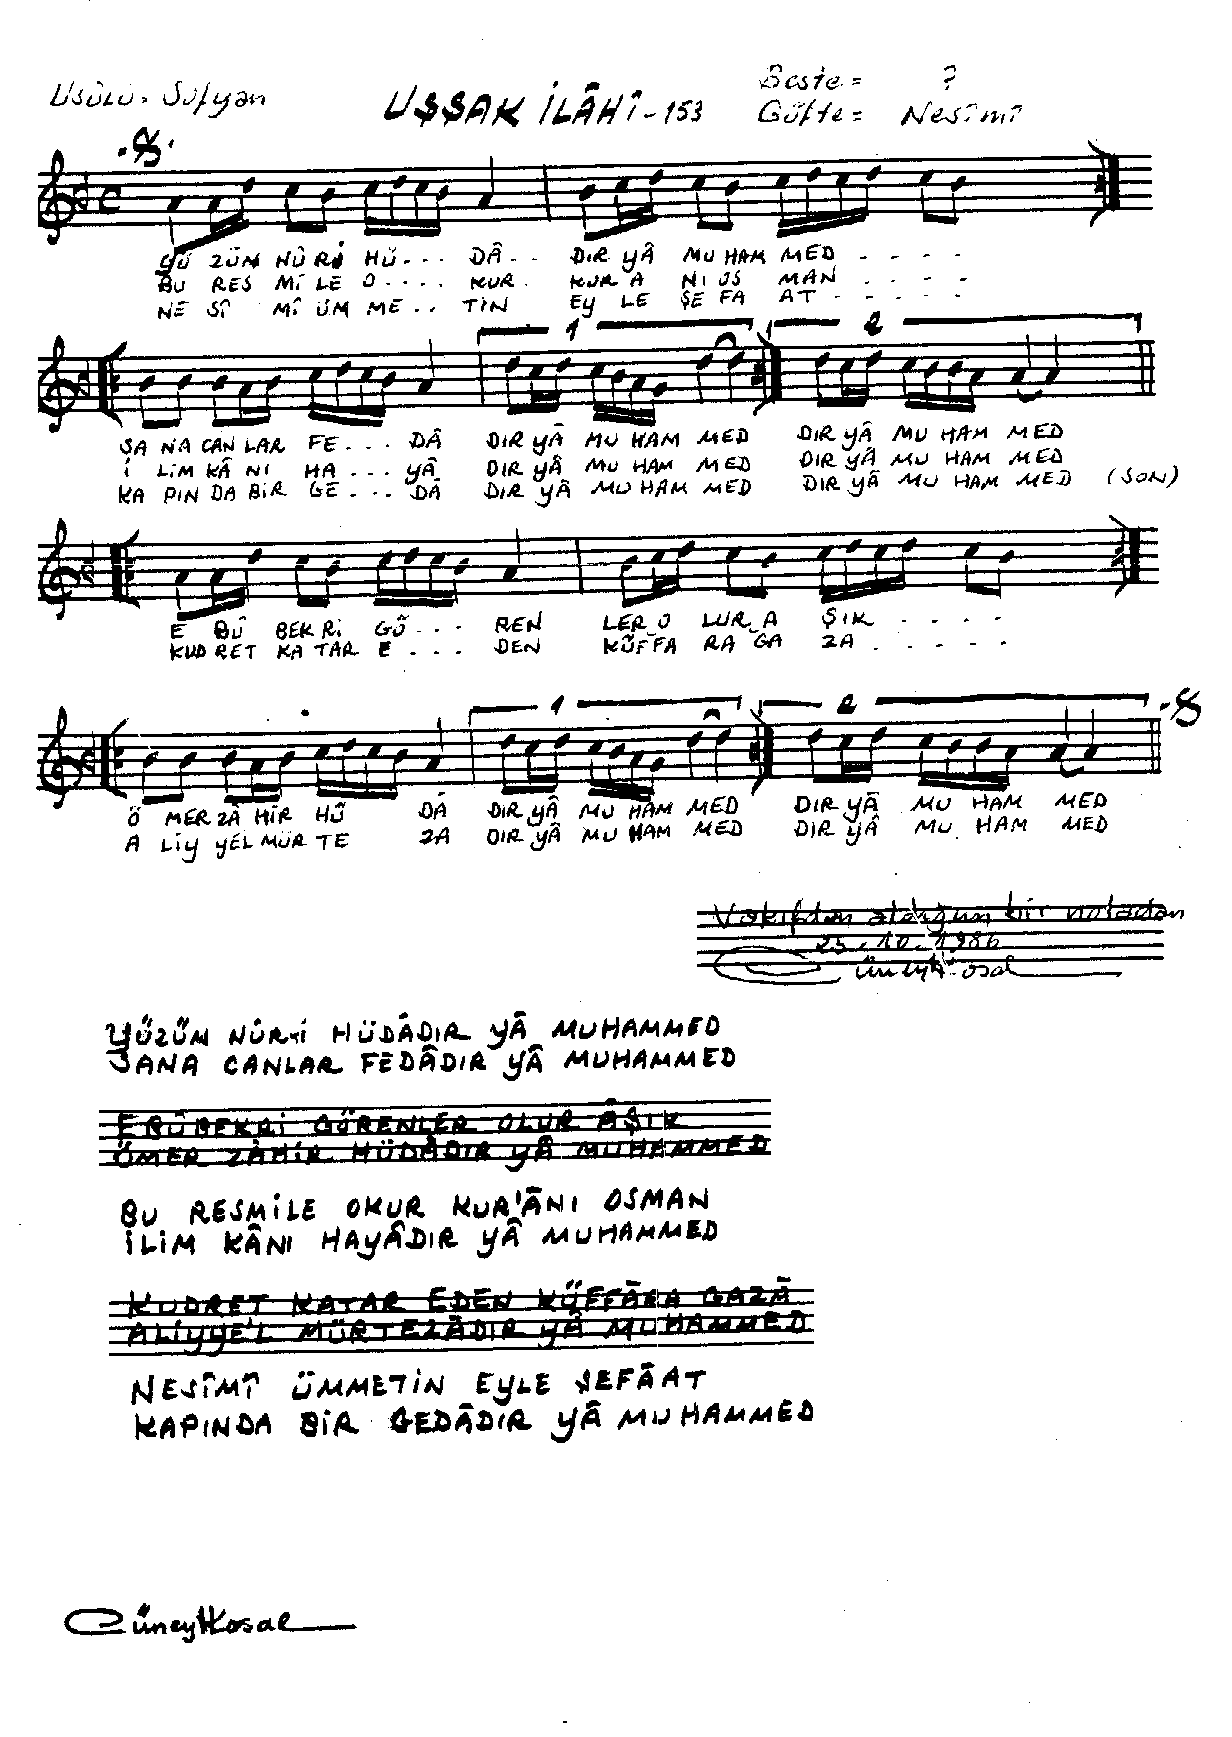 Usûlü = Sofyan
UŞŞAK İLÂHÎ - 153
Beste = ?
Güfte = Nesîmî
YÜ ZÜM NÛ Rİ HÜ - - - DÂ - - DIR YÂ MU HAM MED - - - -
BU RES Mİ LE O - - - - KUR KUR A NI OS MAN - - - -
NE SÎ MÎ ÜM ME - - TİN EY LE ŞE FA AT - - - - -
1 2
SA NA CAN LAR FE - - - DÂ DIR YÂ MU HAM MED DIR YÂ MU HAM MED
İ LİM KÂ NI HA - - - YÂ DIR YÂ MU HAM MED DIR YÂ MU HAM MED
KA PIN DA BİR GE - - - DÂ DIR YÂ MU HAM MED DIR YÂ MU HAM MED (SON)
E BÛ BEK Rİ GÖ - - - REN LER O LUR A ŞIK - - - - -
KUD RET KA TAR E - - - DEN KÜF FA RA GA ZA - - - - -
1 2
Ö MER ZÂ HİR HÜ DÂ DIR YÂ MU HAM MED DIR YÂ MU HAM MED
A LİY YEL MÜR TE ZA DIR YÂ MU HAM MED DIR YÂ MU HAM MED
Vakıfdan aldığım bir notadan
25.10.1986
Cüneyt Kosal
YÜZÜM NÛR-İ HÜDÂDIR YÂ MUHAMMED
SANA CANLAR FEDÂDIR YÂ MUHAMMED
EBÛBEKRİ GÖRENLER OLUR ÂŞIK
ÖMER ZÂHİR HÜDÂDIR YÂ MUHAMMED
BU RESMİLE OKUR KUR'ÂNI OSMAN
İLİM KÂNI HAYÂDIR YÂ MUHAMMED
KUDRET KATAR EDEN KÜFFÂRA GAZÂ
ALİYYE'L MÜRTEZÂDIR YÂ MUHAMMED
NESÎMÎ ÜMMETİN EYLE ŞEFÂAT
KAPINDA BİR GEDÂDIR YÂ MUHAMMED
Cüneyt Kosal